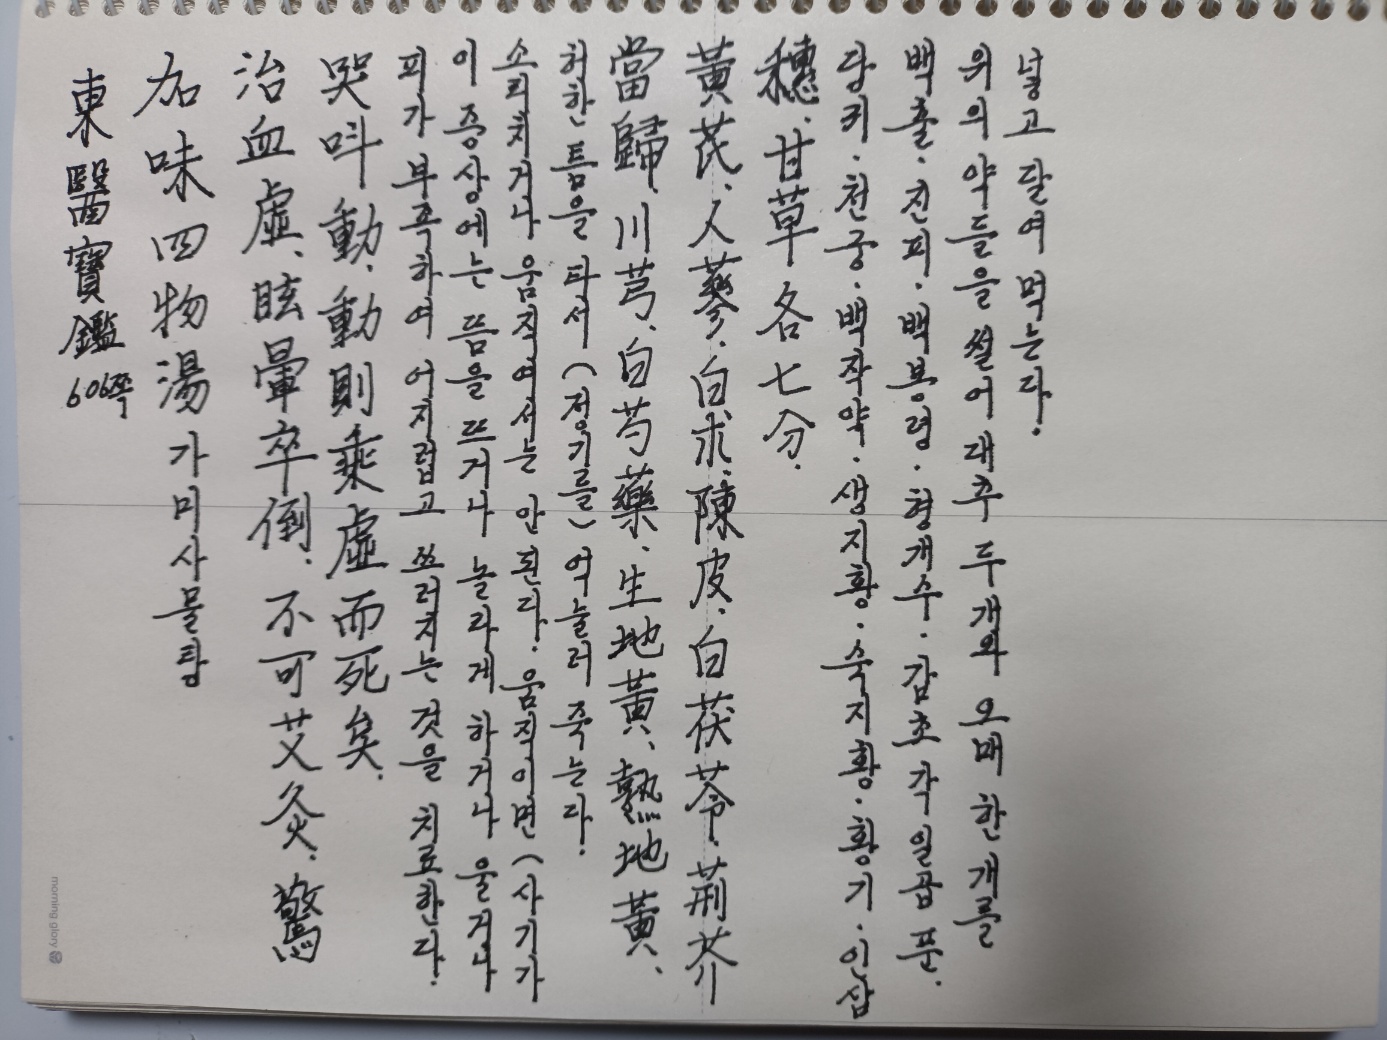 東醫寶鑑 606쪽
加味四物湯 가미사물탕
治血虛、眩暈卒倒、不可艾灸、驚
哭叫動、動則乘虛而死矣、
피가 부족하여 어지럽고 쓰러지는 것을 치료한다.
이 증상에는 뜸을 뜨거나 놀라게 하거나 울거나
소리치거나 움직여서는 안 된다. 움직이면 (사기가
허한 틈을 타서 (정기를) 억눌러 죽는다.
當歸、川芎、白芍藥、生地黃、熟地黃、
黃芪、人蔘、白朮、陳皮、白茯苓、荊芥
穗、甘草 各七分.
당귀·천궁·백작약·생지황·숙지황·황기·인삼
백출·진피·백봉령·형개수·감초 각 일곱 푼.
위의 약들을 썰어 대추 두개와 오매 한 개를
넣고 달여 먹는다.
morning glory